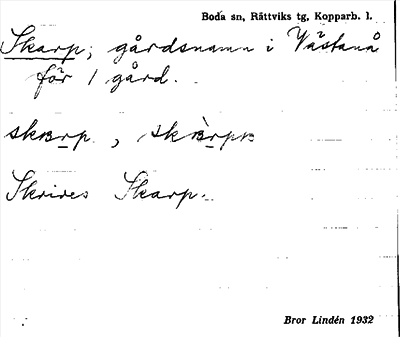 Boda sn, Rättviks tg, Kopparb. l.
Skarp, gårdsnamn i Västanå
för 1 gård.
skarp, skàrpn
Skrives Skarp.
Bror Lindén 1932